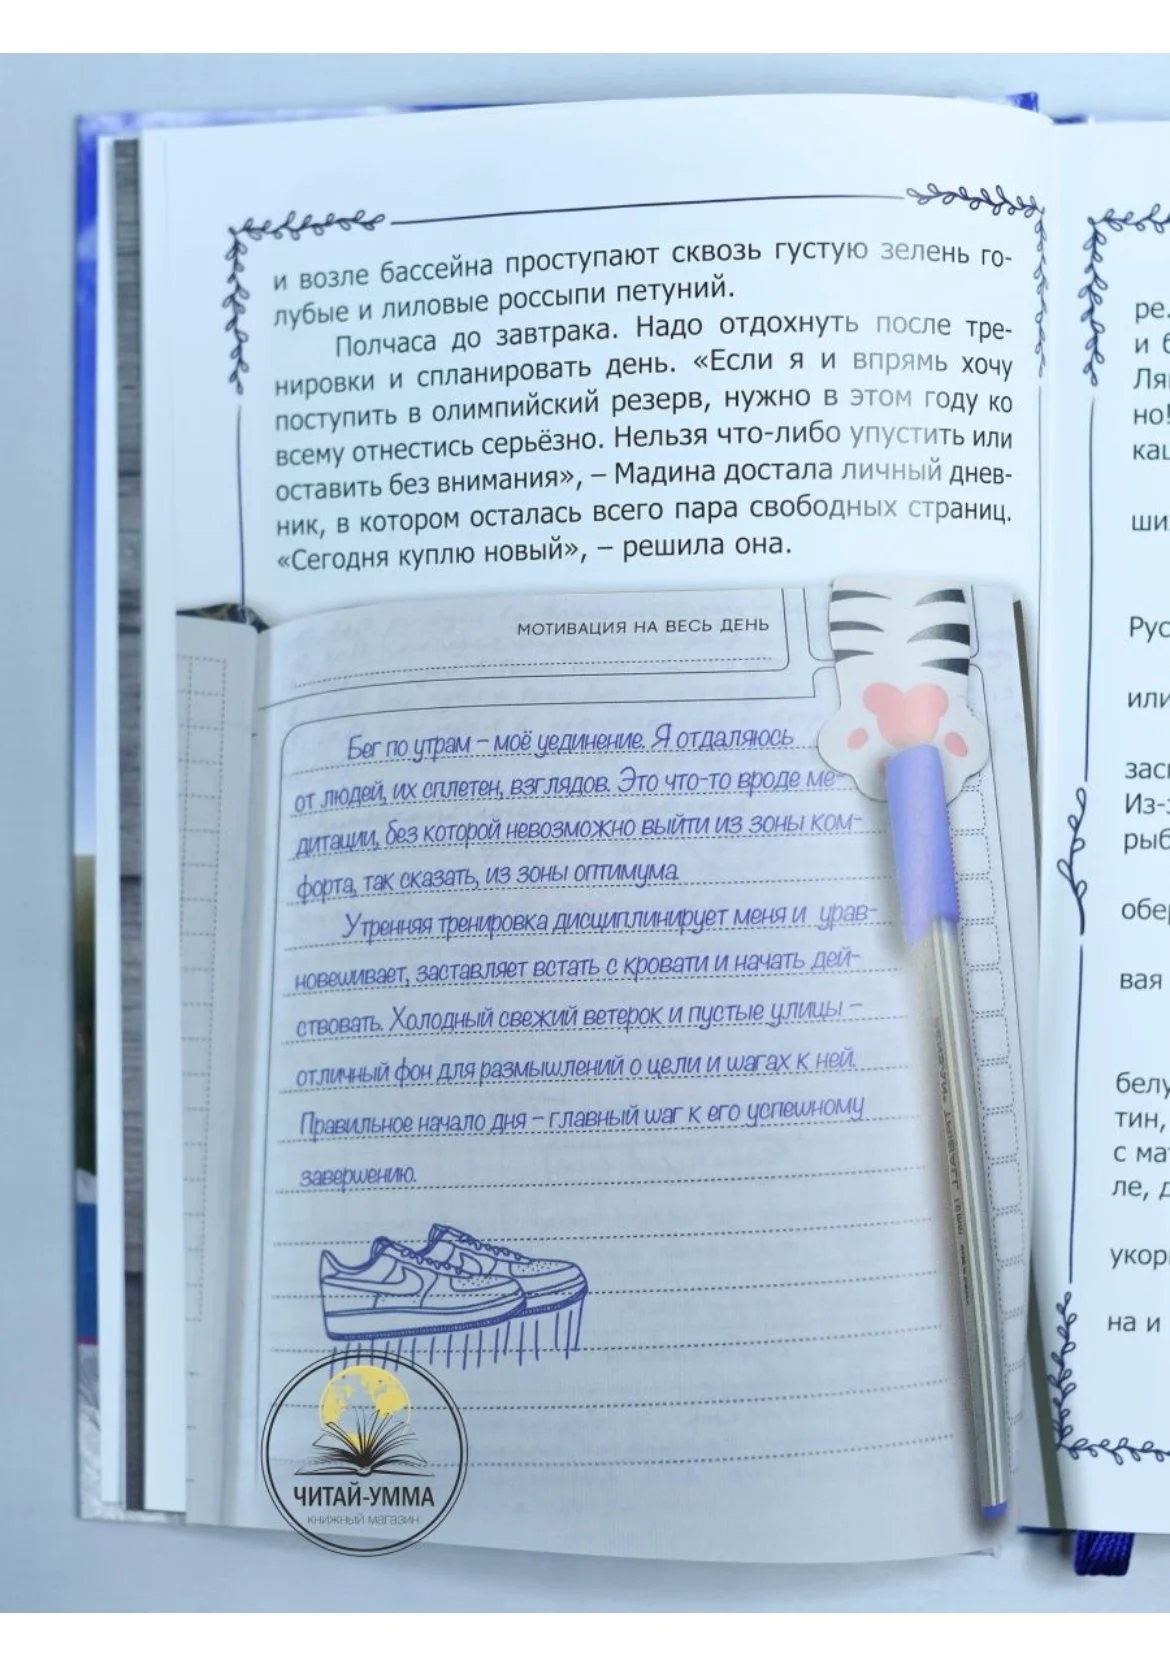 и возле бассейна проступают сквозь густую зелень го-
лубые и лиловые россыпи петуний.
Полчаса до завтрака. Надо отдохнуть после тре-
нировки и спланировать день. «Если я и впрямь хочу
поступить в олимпийский резерв, нужно в этом году ко
всему отнестись серьёзно. Нельзя что-либо упустить или
оставить без внимания», – Мадина достала личный днев-
ник, в котором осталась всего пара свободных страниц.
«Сегодня куплю новый», – решила она.
МОТИВАЦИЯ НА ВЕСЬ ДЕНЬ
Бег по утрам – моё уединение. Я отдаляюсь
от людей, их сплетен, взглядов. Это что-то вроде ме-
дитации, без которой невозможно выйти из зоны ком-
форта, так сказать, из зоны оптимума.
Утренняя тренировка дисциплинирует меня и урав-
новешивает, заставляет встать с кровати и начать дей-
ствовать. Холодный свежий ветерок и пустые улицы –
отличный фон для размышлений о цели и шагах к ней.
Правильное начало дня – главный шаг к его успешному
завершению.
ЧИТАЙ-УММА
КНИЖНЫЙ МАГАЗИН
ре.
и б
но!
ши
Рус
или
Из-
рыб
вая
белу
тин,
с ма
ле, д
на и